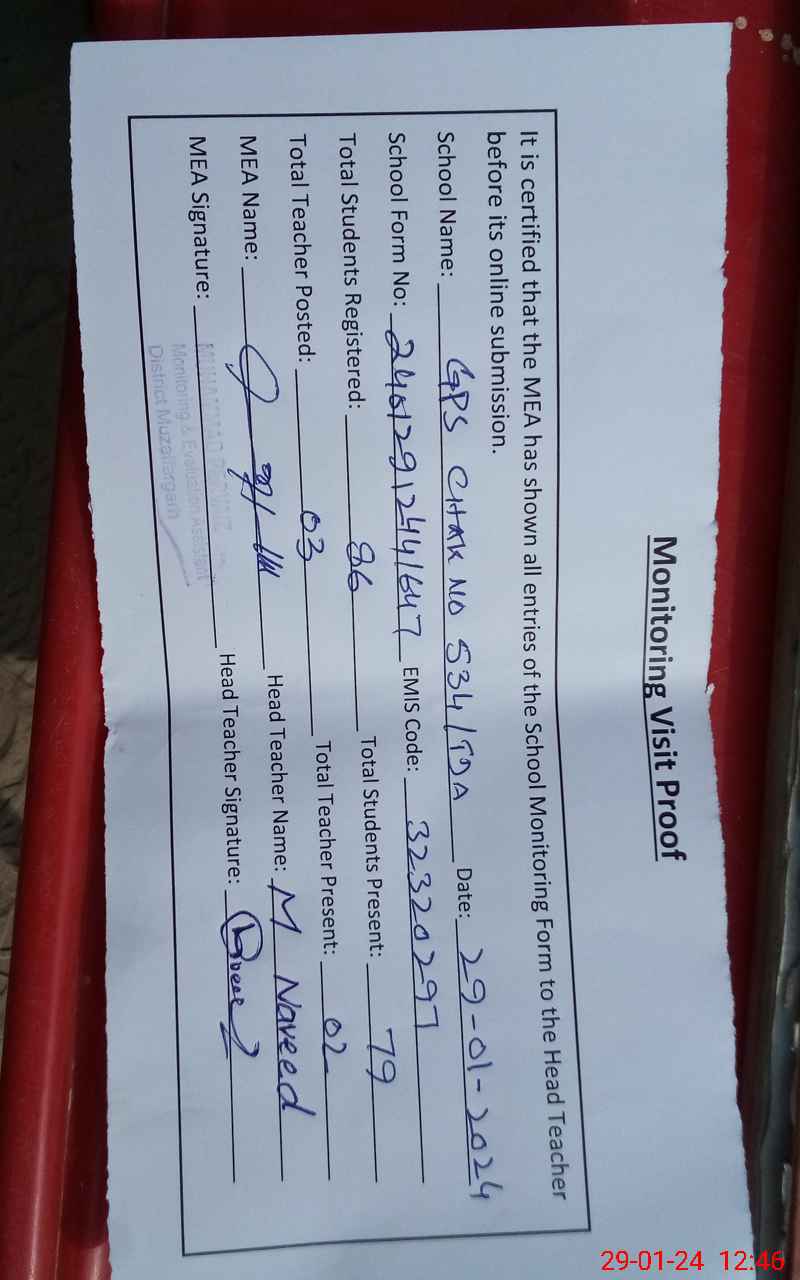 Monitoring Visit Proof
It is certified that the MEA has shown all entries of the School Monitoring Form to the Head Teacher
before its online submission.
School Name: GPS CHAK NO 534/TDA Date: 29-01-2024
School Form No: 24012912441647 EMIS Code: 32320297
Total Students Registered: 86 Total Students Present: 79
Total Teacher Posted: 03 Total Teacher Present: 02
MEA Name: Head Teacher Name: M Naveed
MEA Signature: Head Teacher Signature:
MUHAMMAD
Monitoring & Evaluation Assistant
District Muzaffargarh
29-01-24 12:46